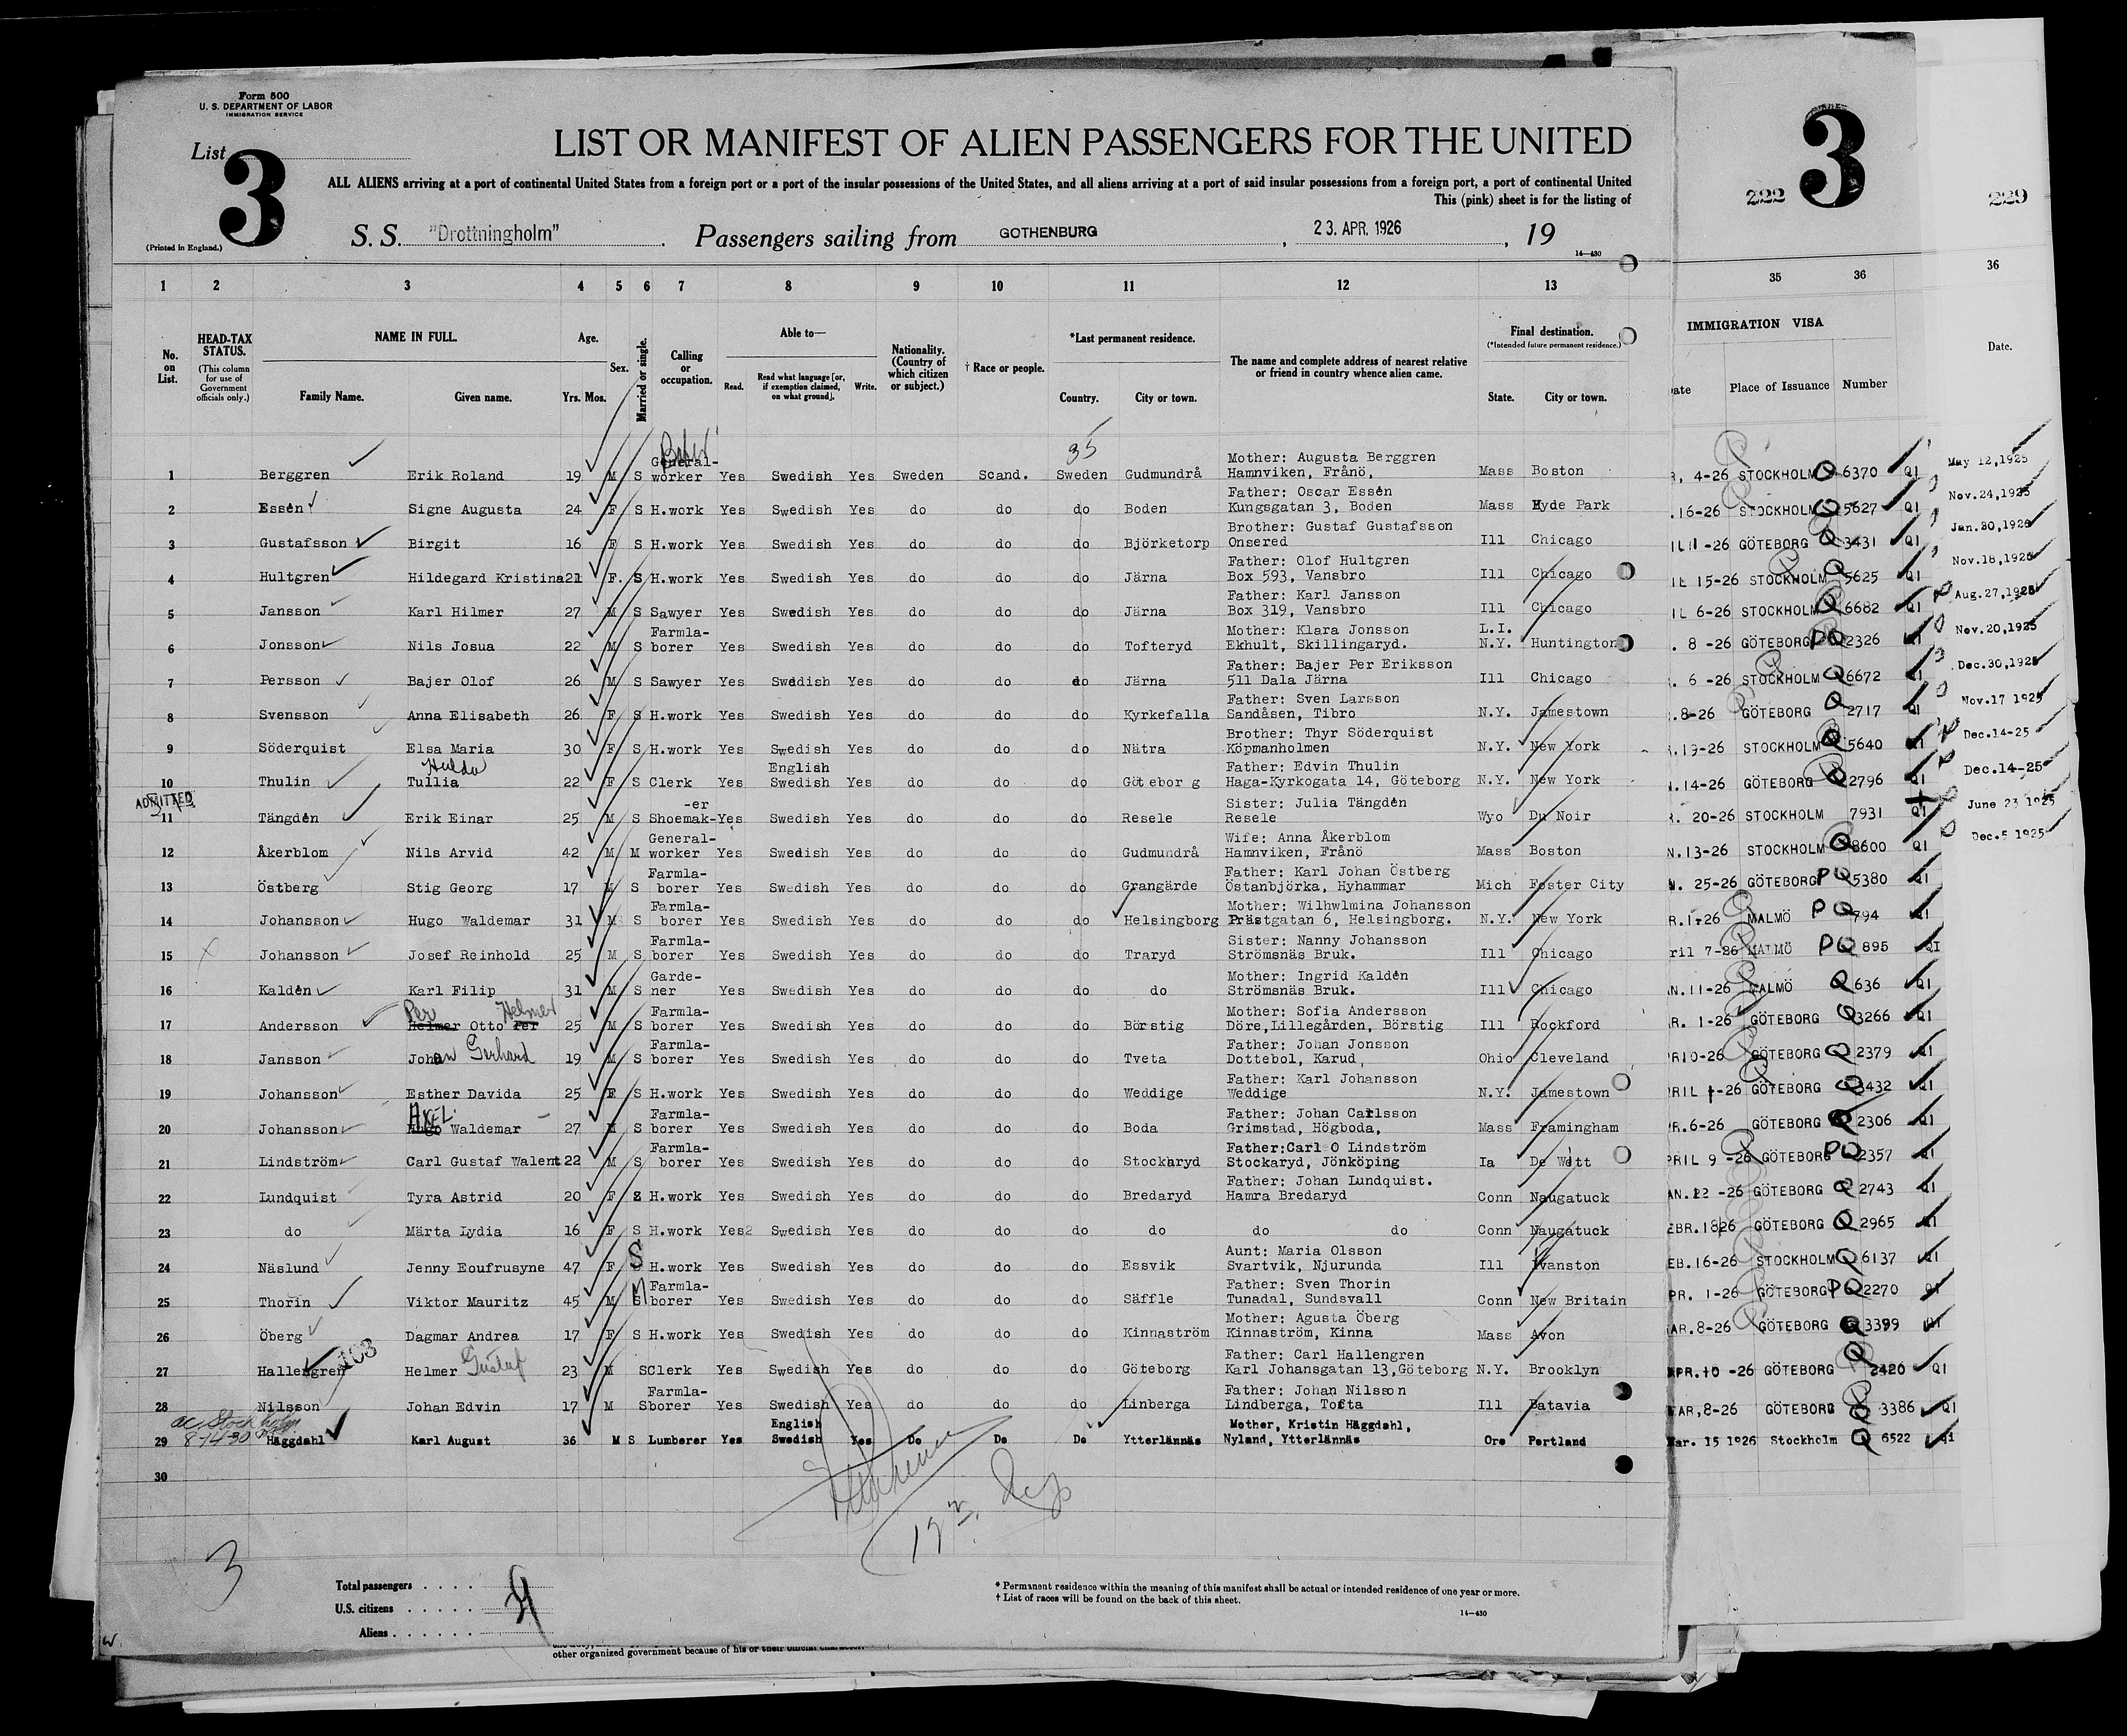 Form 500
U. S. DEPARTMENT OF LABOR
IMMIGRATION SERVICE
List 3
(Printed in England.)
LIST OR MANIFEST OF ALIEN PASSENGERS FOR THE UNITED
ALL ALIENS arriving at a port of continental United States from a foreign port or a port of the insular possessions of the United States, and all aliens arriving at a port of said insular possessions from a foreign port, a port of continental United
This (pink) sheet is for the listing of
S. S. "Drottningholm" Passengers sailing from GOTHENBURG, 23. APR. 1926, 19
14—430
222 3 229
1 2 3 4 5 6 7 8 9 10 11 12 13 35 36 36
No. on List.
HEAD-TAX STATUS.
(This column for use of Government officials only.)
NAME IN FULL.
Family Name. Given name.
Age.
Yrs. Mos.
Sex.
Married or single.
Calling or occupation.
Able to—
Read. Read what language [or, if exemption claimed, on what ground]. Write.
Nationality. (Country of which citizen or subject.)
† Race or people.
*Last permanent residence.
Country. City or town.
The name and complete address of nearest relative or friend in country whence alien came.
Final destination.
(*Intended future permanent residence.)
State. City or town.
IMMIGRATION VISA
Place of Issuance Number
Date.
35
1 Berggren Erik Roland 19 M S General-worker Yes Swedish Yes Sweden Scand. Sweden Gudmundrå Mother: Augusta Berggren Hamnviken, Frånö, Mass Boston 4-26 STOCKHOLM Q 6370 QI May 12,1925
2 Essén Signe Augusta 24 F S H.work Yes Swedish Yes do do do Boden Father: Oscar Essén Kungsgatan 3, Boden Mass Hyde Park .16-26 STOCKHOLM Q 5627 QI Nov.24,1925
3 Gustafsson Birgit 16 F S H.work Yes Swedish Yes do do do Björketorp Brother: Gustaf Gustafsson Onsered Ill Chicago -26 GÖTEBORG Q 3431 QI Jan.30,1926
4 Hultgren Hildegard Kristina 21 F. S H.work Yes Swedish Yes do do do Järna Father: Olof Hultgren Box 593, Vansbro Ill Chicago 15-26 STOCKHOLM Q 5625 QI Nov.18,1925
5 Jansson Karl Hilmer 27 M S Sawyer Yes Swedish Yes do do do Järna Father: Karl Jansson Box 319, Vansbro Ill Chicago IL 6-26 STOCKHOLM Q 6682 QI Aug.27,1925
6 Jonsson Nils Josua 22 M S Farmla-borer Yes Swedish Yes do do do Tofteryd Mother: Klara Jonsson Ekhult, Skillingaryd. L.I. N.Y. Huntington 8 -26 GÖTEBORG PQ 2326 QI Nov.20,1925
7 Persson Bajer Olof 26 M S Sawyer Yes Swedish Yes do do do Järna Father: Bajer Per Eriksson 511 Dala Järna Ill Chicago 6 -26 STOCKHOLM Q 6672 QI Dec.30,1925
8 Svensson Anna Elisabeth 26 F S H.work Yes Swedish Yes do do do Kyrkefalla Father: Sven Larsson Sandåsen, Tibro N.Y. Jamestown .8-26 GÖTEBORG Q 2717 QI Nov.17 1925
9 Söderquist Elsa Maria 30 F S H.work Yes Swedish Yes do do do Nätra Brother: Thyr Söderquist Köpmanholmen N.Y. New York .19-26 STOCKHOLM Q 5640 QI Dec.14-25
10 Thulin Hulda Tullia 22 F S Clerk Yes English Swedish Yes do do do Göteborg Father: Edvin Thulin Haga-Kyrkogata 14, Göteborg N.Y. New York .14-26 GÖTEBORG Q 2796 QI Dec.14-25
ADMITTED
11 Tängdén Erik Einar 25 M S Shoemak-er Yes Swedish Yes do do do Resele Sister: Julia Tängdén Resele Wyo Du Noir 20-26 STOCKHOLM 7931 QI June 23 1925
12 Åkerblom Nils Arvid 42 M M General-worker Yes Swedish Yes do do do Gudmundrå Wife: Anna Åkerblom Hamnviken, Frånö Mass Boston N.13-26 STOCKHOLM Q 8600 QI Dec.5 1925
13 Östberg Stig Georg 17 M S Farmla-borer Yes Swedish Yes do do do Grangärde Father: Karl Johan Östberg Östanbjörka, Hyhammar Mich Foster City 25-26 GÖTEBORG PQ 5380 QI
14 Johansson Hugo Waldemar 31 M S Farmla-borer Yes Swedish Yes do do do Helsingborg Mother: Wilhwlmina Johansson Prästgatan 6, Helsingborg. N.Y. New York R.1-26 MALMÖ PQ 794 QI
15 Johansson Josef Reinhold 25 M S Farmla-borer Yes Swedish Yes do do do Traryd Sister: Nanny Johansson Strömsnäs Bruk. Ill Chicago ril 7-26 MALMÖ PQ 895 QI
16 Kaldén Karl Filip 31 M S Garde-ner Yes Swedish Yes do do do do Mother: Ingrid Kaldén Strömsnäs Bruk. Ill Chicago N.11-26 MALMÖ Q 636 QI
17 Andersson Per Helmer Otto Per Helmer 25 M S Farmla-borer Yes Swedish Yes do do do Börstig Mother: Sofia Andersson Döre,Lillegården, Börstig Ill Rockford R. 1-26 GÖTEBORG Q 3266 QI
18 Jansson Johan Gerhard 19 M S Farmla-borer Yes Swedish Yes do do do Tveta Father: Johan Jonsson Dottebol, Karud, Ohio Cleveland 10-26 GÖTEBORG Q 2379 QI
19 Johansson Esther Davida 25 F S H.work Yes Swedish Yes do do do Weddige Father: Karl Johansson Weddige N.Y. Jamestown RIL 1-26 GÖTEBORG Q 3432 QI
20 Johansson AXEL Hugo Waldemar 27 M S Farmla-borer Yes Swedish Yes do do do Boda Father: Johan Carlsson Grimstad, Högboda, Mass Framingham R.6-26 GÖTEBORG Q 2306 QI
21 Lindström Carl Gustaf Walent 22 M S Farmla-borer Yes Swedish Yes do do do Stockaryd Father:Carl O Lindström Stockaryd, Jönköping Ia De Witt PRIL 9 -26 GÖTEBORG PQ 2357 QI
22 Lundquist Tyra Astrid 20 F S H.work Yes Swedish Yes do do do Bredaryd Father: Johan Lundquist. Hamra Bredaryd Conn Naugatuck AN.22 -26 GÖTEBORG Q 2743 QI
23 do Märta Lydia 16 F S H.work Yes Swedish Yes do do do do do do Conn Naugatuck EBR.18 26 GÖTEBORG Q 2965 QI
24 Näslund Jenny Eoufrusyne 47 F S H.work Yes Swedish Yes do do do Essvik Aunt: Maria Olsson Svartvik, Njurunda Ill Evanston EB.16-26 STOCKHOLM Q 6137 QI
25 Thorin Viktor Mauritz 45 M M S Farmla-borer Yes Swedish Yes do do do Säffle Father: Sven Thorin Tunadal, Sundsvall Conn New Britain PR. 1-26 GÖTEBORG PQ 2270 QI
26 Öberg Dagmar Andrea 17 F S H.work Yes Swedish Yes do do do Kinnaström Mother: Agusta Öberg Kinnaström, Kinna Mass Avon AR.8-26 GÖTEBORG Q 3399 QI
27 Hallengren 103 Helmer Gustaf 23 M S Clerk Yes Swedish Yes do do do Göteborg Father: Carl Hallengren Karl Johansgatan 13,Göteborg N.Y. Brooklyn APR.10 -26 GÖTEBORG Q 2420 QI
28 Nilsson Johan Edvin 17 M S Farmla-borer Yes Swedish Yes do do do Linberga Father: Johan Nilsson Lindberga, Tofta Ill Batavia MAR,8-26 GÖTEBORG Q 3386 QI
8-14-30
29 Häggdahl Karl August 36 M S Lumberer Yes English Swedish Yes Do Do Do Ytterlännäs Mother, Kristin Häggdahl, Nyland, Ytterlännäs Ore Portland Mar. 15 1926 Stockholm Q 6522 QI
30
3
Total passengers
U.S. citizens
Aliens
* Permanent residence within the meaning of this manifest shall be actual or intended residence of one year or more.
† List of races will be found on the back of this sheet.
14—430
other organized government because of his or their official character.